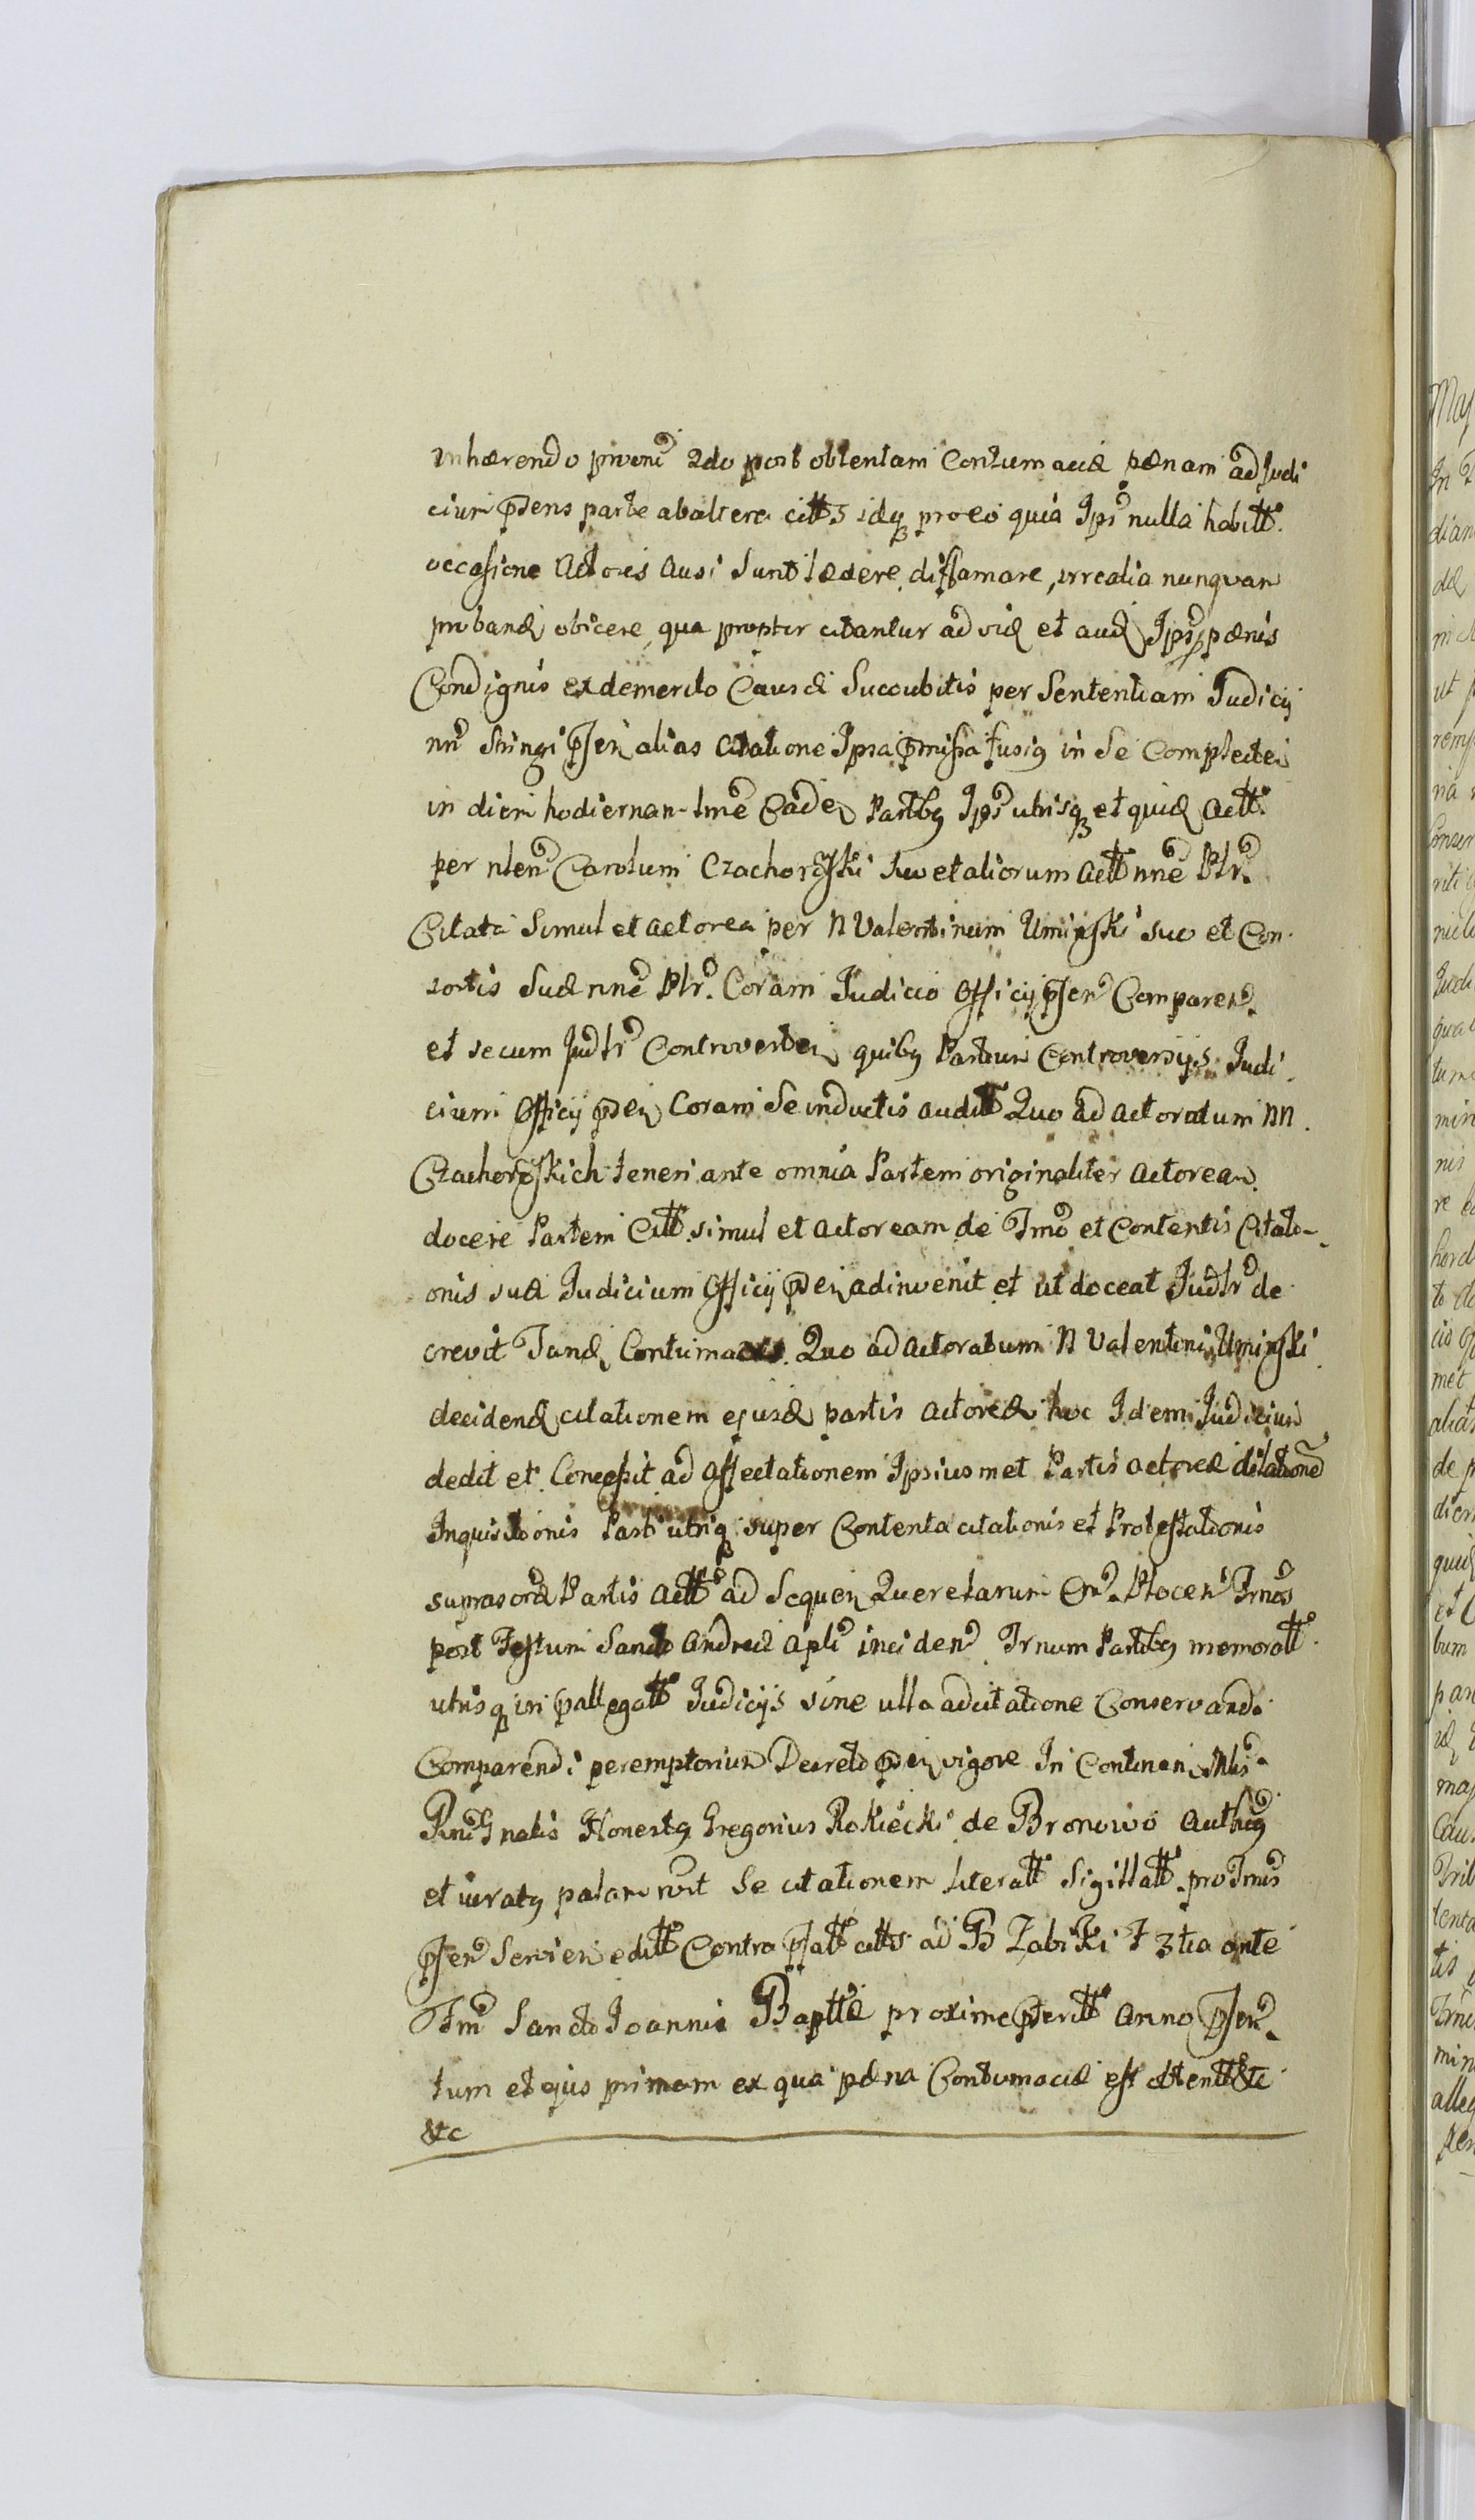 inhærendo priori 2do post obtentam Contumaciæ pænam ad Judi
cium pñens parte ab altera citts idq pro eo quia Ips nulla habitt.
occasione Actores Ausi sunt lædere, diffamare, irrealia nunquam
proband obicere, qua propter citantur ad vid et aud Ips pænis
Condignis ex demerito Causæ Succubitis per Sententiam Judicij
nri stringi psen alias Citatione Ipsa pmissa fusiq in se Complecten
in diem hodiernam tme Caden Partbq Ips utrisq et quid Actt.
per nlen Carolum Czachoroski suo et aliorum Actt nne Pltr.
Citata Simul et Actorea per N Valentinum Uminski suo et Con
sortis Suæ nne Pltr. Coram Judicio Officij psen Comparen.
et secum Judtr Controverten quibq Partium Controversijs Judi
cium Officij psen Coram Se inductis auditt Quo ad actoratum NN.
Czachoroskich teneri ante omnia Partem originaliter Actoream
docere Partem Citt simul et actoream de Tmo et Contentis Citati-
onis suæ Judicium Officij psen adinvenit et ut doceat Judtr de
crevit Tand Contumacis. Quo ad actoratum N Valentini Uminski
decidend citationem ejusd partis actoreæ hoc Idem Judicium
dedit et Concessit ad affectationem Ipsiusmet Partis actoreæ dilatione
Inquisitionis Parti utriq super Contenta citationis et Protestationis
suprascr Partis Actt ad Sequen Querelarum Cr. Plocen Trnos
post Festum Sancti Andreæ Apli inciden. Trnum Partibq memoratt.
utrisq in pallegatt Judicijs sine ulla adcitatione Conservand.
Comparendi peremptorium Decreto psen vigore In Continen Mtis
Gnalis Honestq Gregorius Rokicki de Bronowo Authq
et juratq palam rvit Se citationem literatt Sigillatt pro Tmis
psen Servien editt Contra psatt citts ad B Zabiki F 3tia ante
Fm Sancti Joannis Bapttæ proxime pteritt Anno psen.
tum et ejus primam ex qua pæna Contumaciæ est obtentt &c
&c